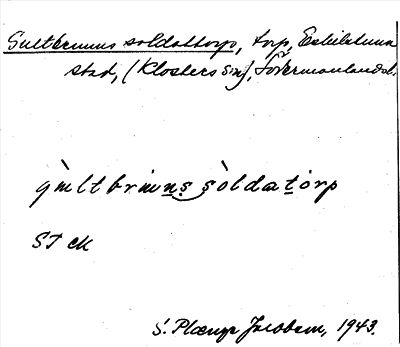 Gultbrunns soldattorp, torp, Eskilstuna
stad, (Klosters sn), Södermanlands l.
gùltbruns sòldatòrp
ST ck
S. Jacobsen, 1943.